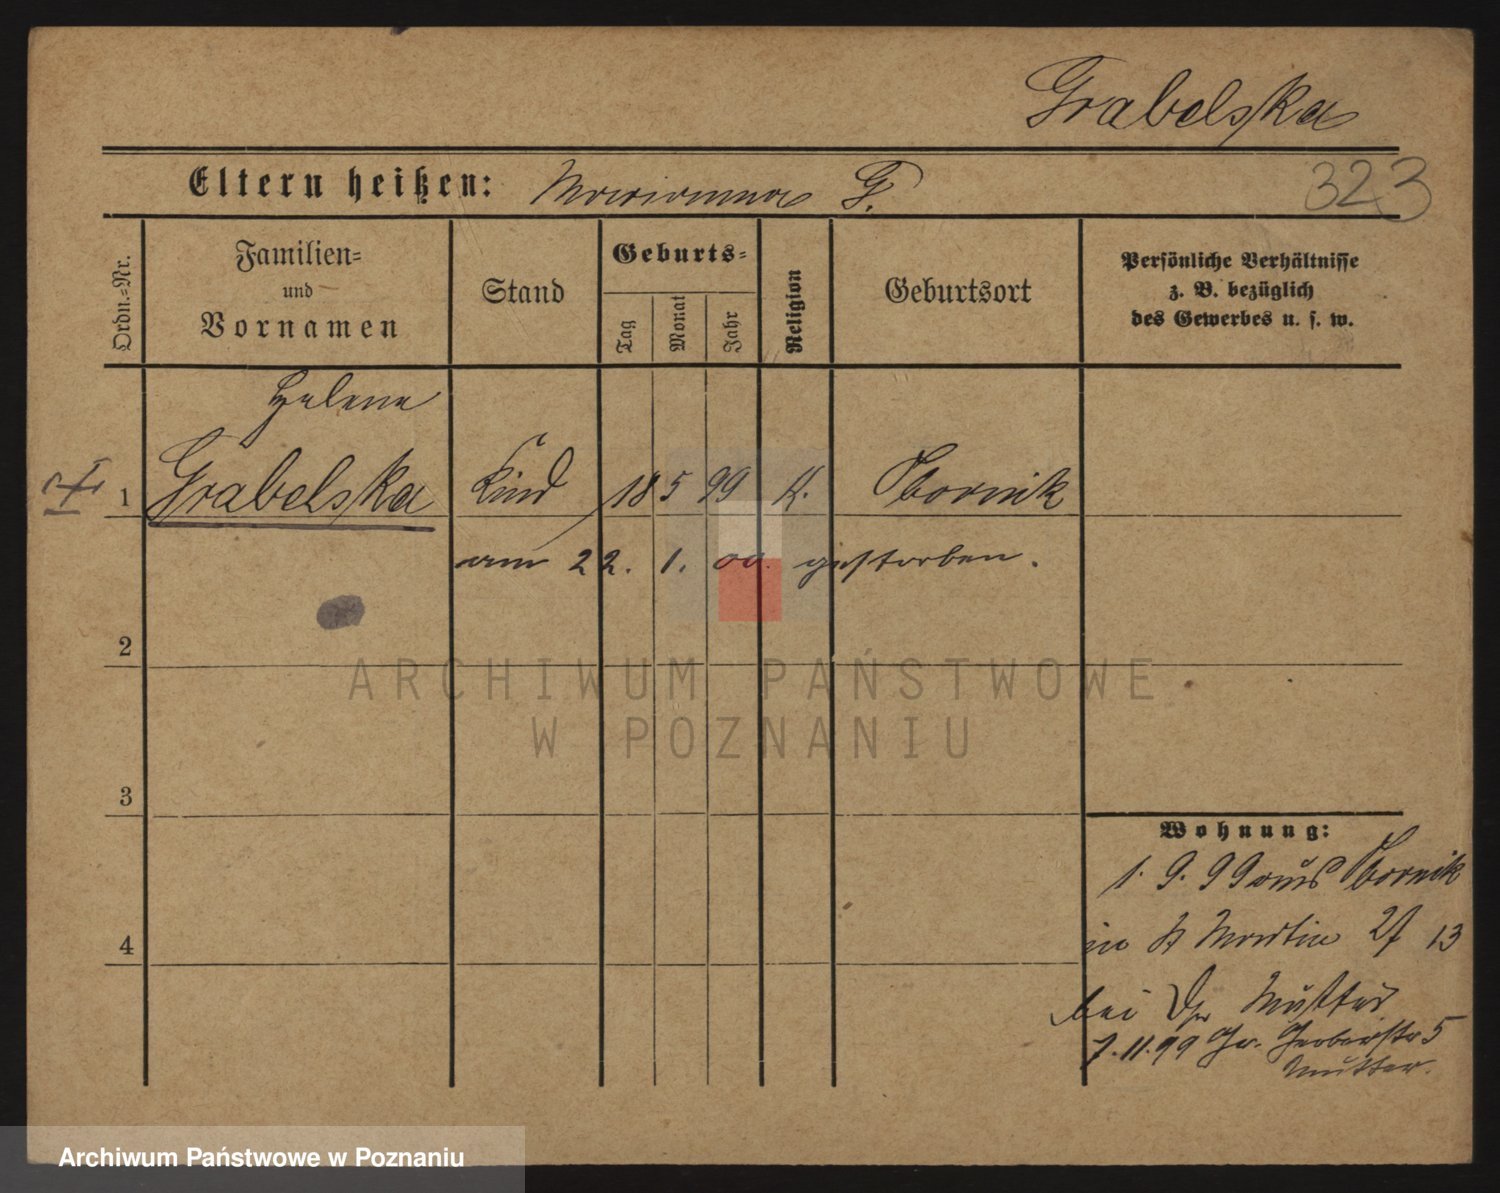 Grabelska
Eltern heißen: Marianna G.
323
Ordn.=Nr.
Familien=
und
Vornamen
Stand
Geburts=
Tag
Monat
Jahr
Religion
Geburtsort
Persönliche Verhältnisse
z. B. bezüglich
des Gewerbes u. s. w.
Helene
1 Grabelska Kind 18 5 99 K. Obornik
am 22. 1. 00. gestorben.
2
ARCHIWUM PAŃSTWOWE
W POZNANIU
3
Wohnung:
1. 9. 99 aus Obornik
4
in St Martin 27 13
bei Mutter
7. 11. 99 Gr. Gerberstr 5
Mutter.
Archiwum Państwowe w Poznaniu